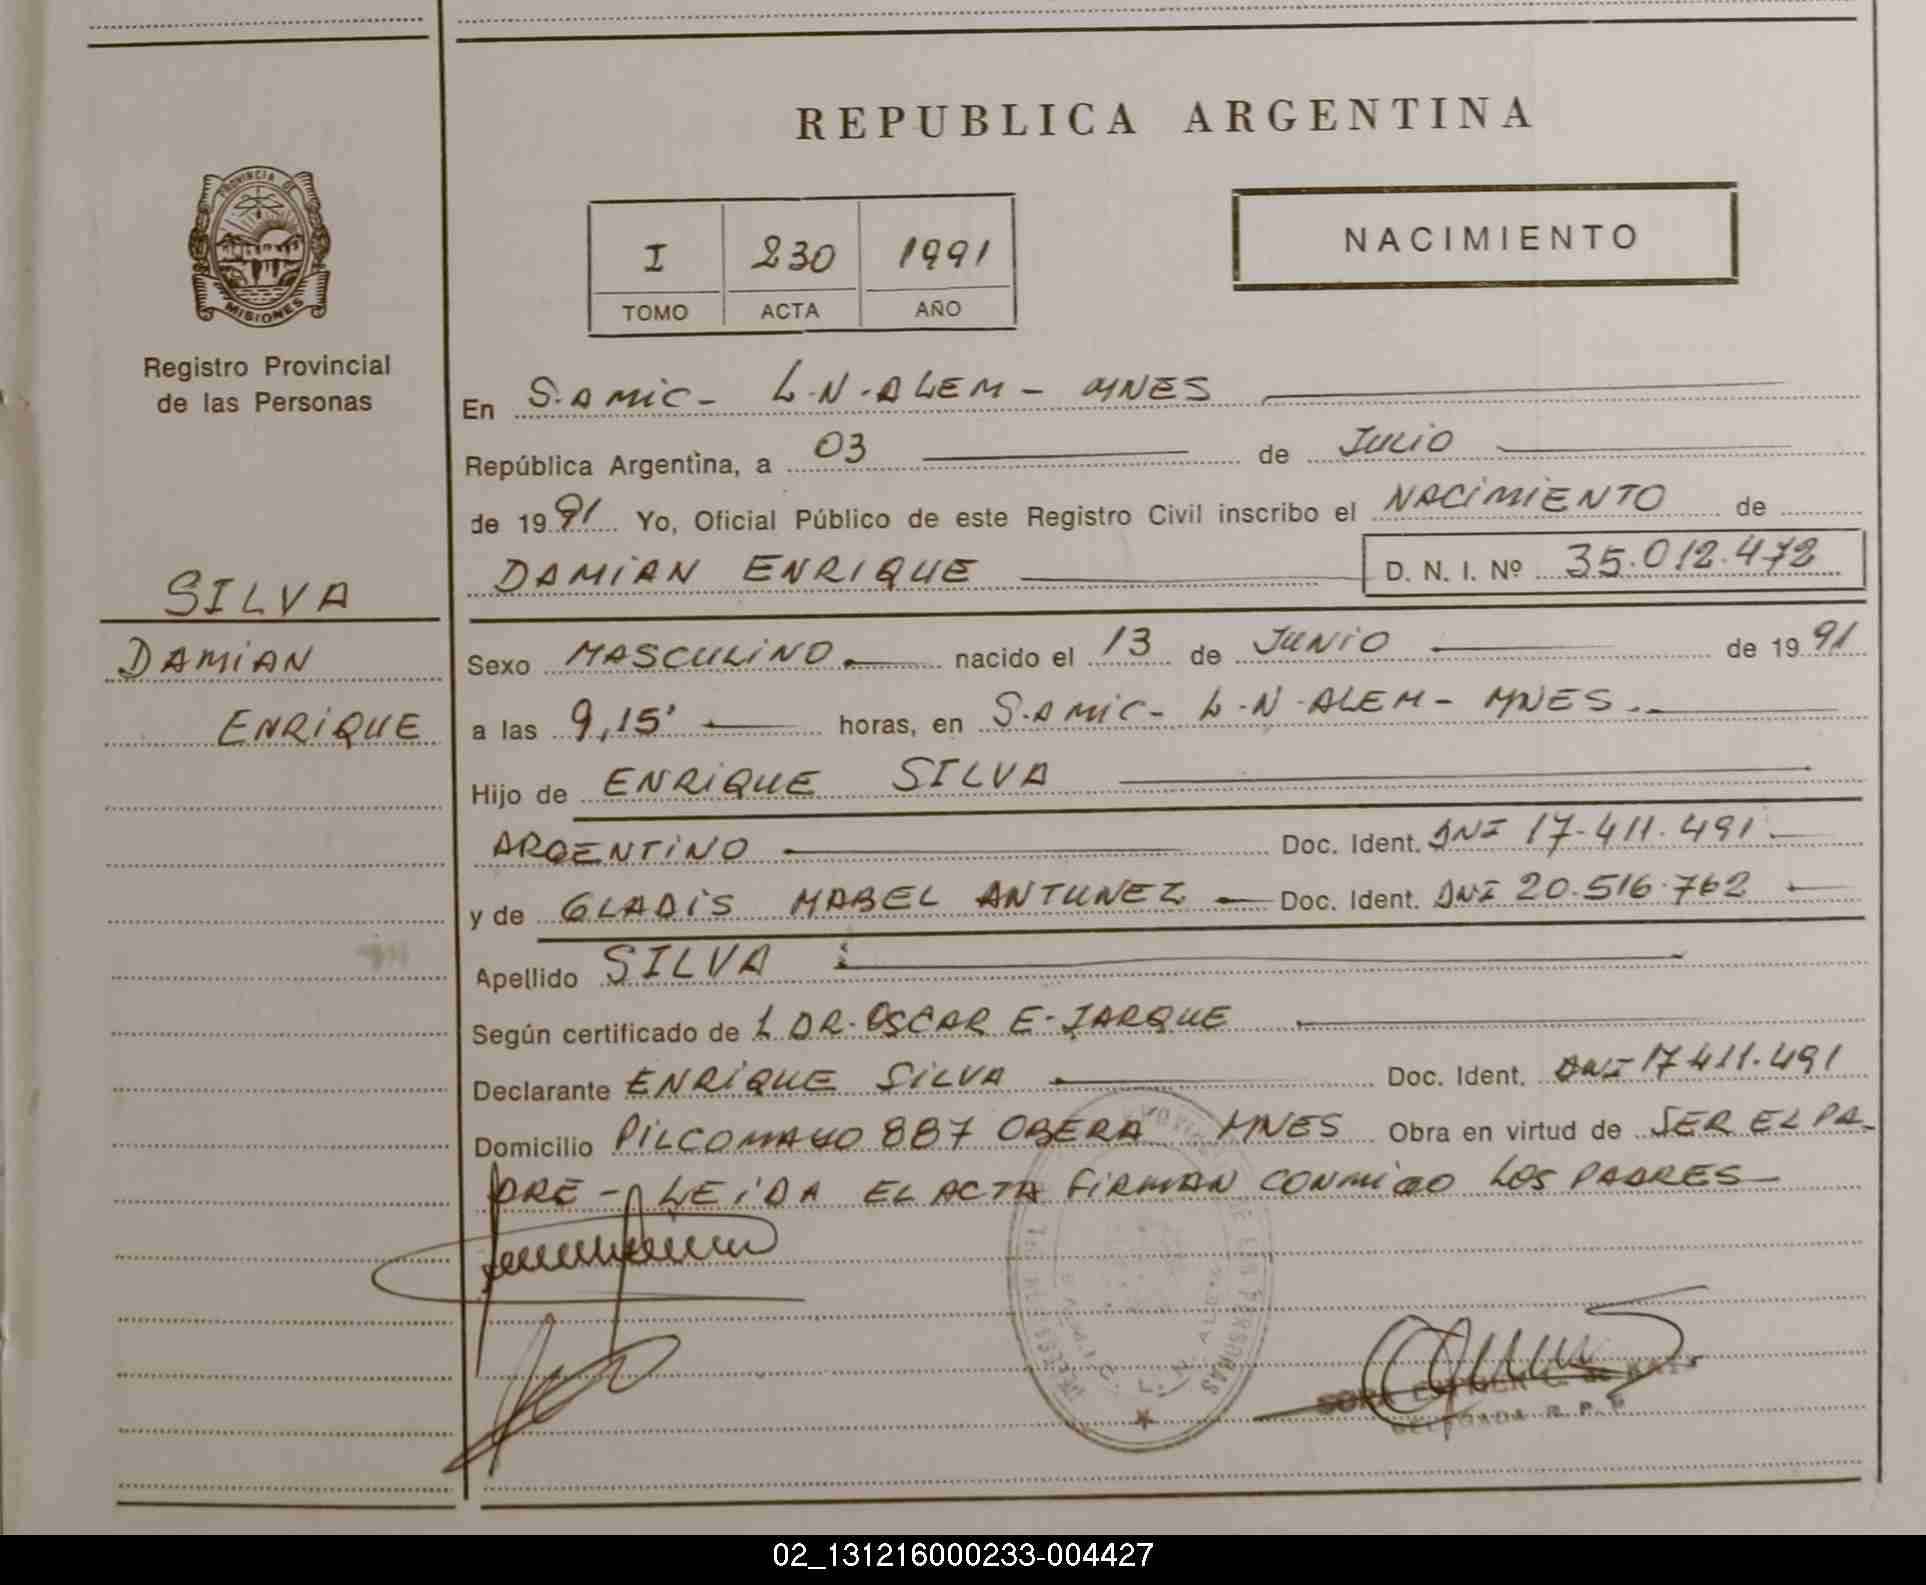 REPUBLICA ARGENTINA
PROVINCIA DE
MISIONES
Registro Provincial
de las Personas
I 230 1991
TOMO ACTA AÑO
NACIMIENTO
En S.A MIC- L.N.ALEM - MNES
República Argentina, a 03 de JULIO
de 1991 Yo, Oficial Público de este Registro Civil inscribo el NACIMIENTO de
DAMIAN ENRIQUE D. N. I. Nº 35.012.472
SILVA
DAMIAN
ENRIQUE
Sexo MASCULINO nacido el 13 de JUNIO de 1991
a las 9,15' horas, en S.A MIC- L.N.ALEM - MNES
Hijo de ENRIQUE SILVA
ARGENTINO Doc. Ident. DNI 17.411.491
y de GLADIS MABEL ANTUNEZ Doc. Ident. DNI 20.516.762
Apellido SILVA
Según certificado de L DR. OSCAR E. JARQUE
Declarante ENRIQUE SILVA Doc. Ident. DNI 17411.491
Domicilio PILCOMAYO 887 OBERA MNES Obra en virtud de SER EL PA-
DRE - LEIDA EL ACTA FIRMAN CONMIGO LOS PADRES
DE LAS PERSONAS
L. N. ALEM
DELEGADA R. P. P.
02_131216000233-004427